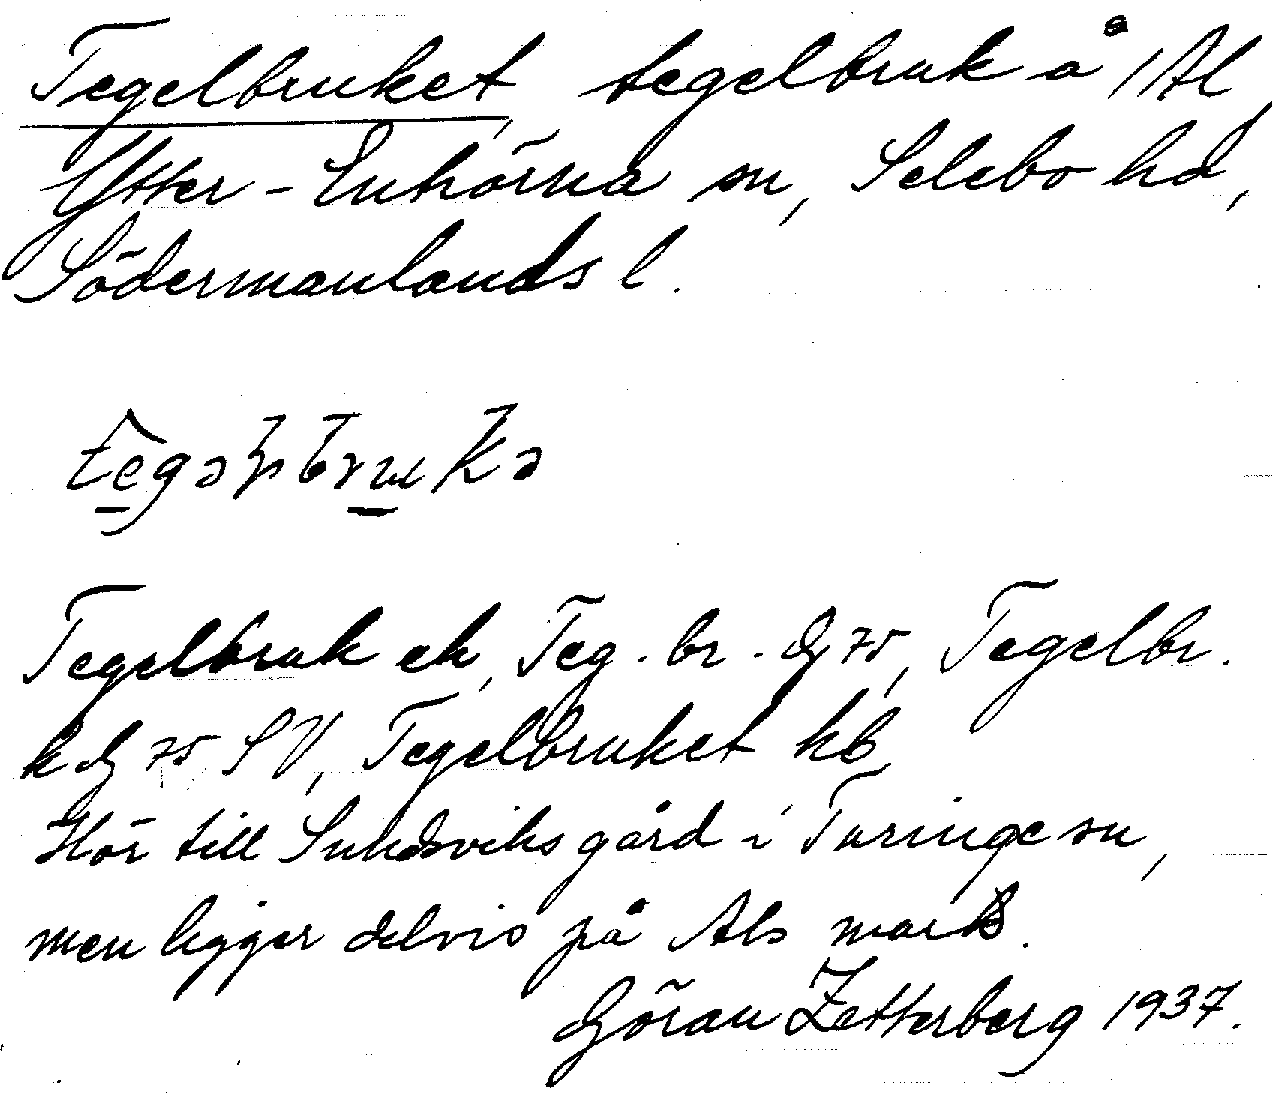 Tegelbruket, tegelbruk å 1 Al,
Ytter-Enhörna sn, Selebo hd,
Södermanlands l.
Tegelbruk ek, Teg. br. dg 75, Tegelbr.
k dg 75 SV, Tegelbruket kb
Hör till Sundsviks gård i Turinge sn,
men ligger delvis på Als mark.
Göran Zetterberg 1937.